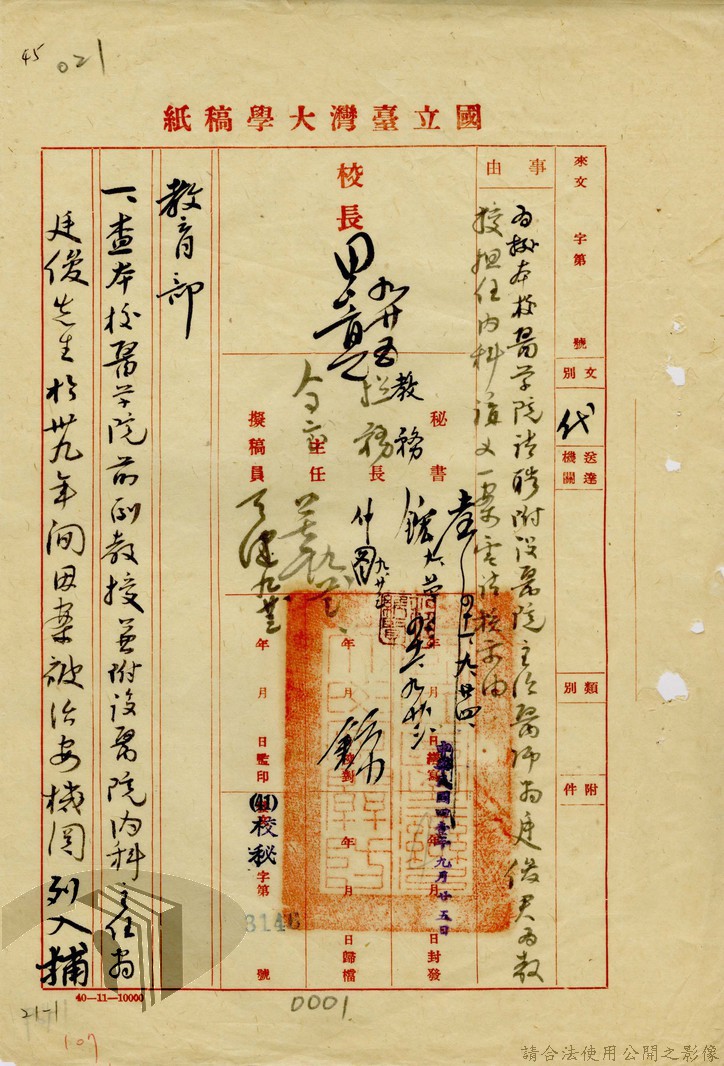 45
021
國立臺灣大學稿紙
來文 字第 號
文別
代
送達機關
類別
附件
事由
為擬本校醫学院請聘附設醫院主治醫師翁廷俊君為教
授担任內科講义一案電請核示由
校長
九廿五
秘書
教務
總務長
主任
擬稿員
九、廿四、
年 月 日繕寫
年 月 日校對
年 月 日監印
年 月 日封發
年 月 日歸檔
中華民國四壹年九月廿五日
(41)
校秘
字第 3146 號
教育部
一、查本校醫学院前副教授兼附設醫院內科主任翁
廷俊先生於卅九年間因案被治安機関列入捕
40—11—10000
21-1
107
0001
請合法使用公開之影像